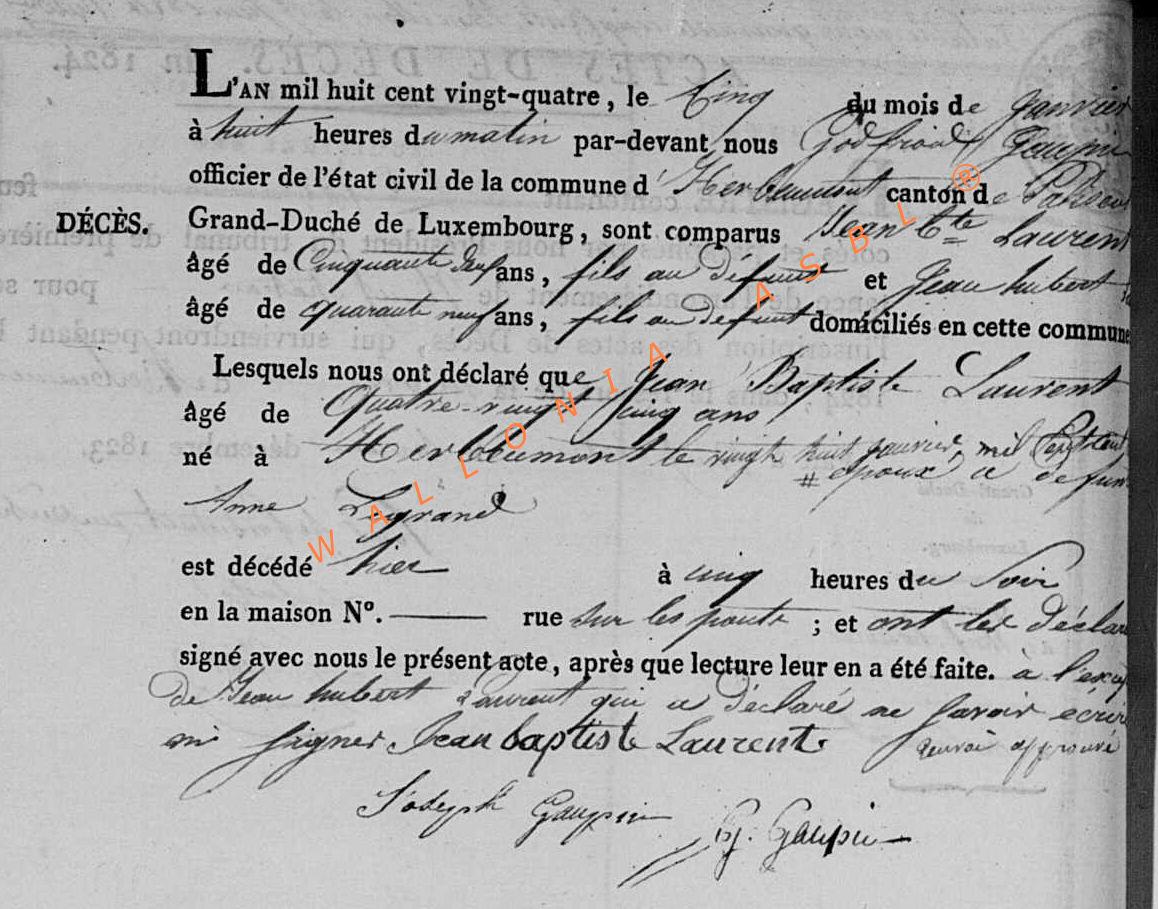 L'AN mil huit cent vingt-quatre, le Cinq du mois de Janvier
à huit heures du matin par-devant nous Godfroid Gaupin
officier de l'état civil de la commune d'Herbeumont canton de
DÉCÈS. Grand-Duché de Luxembourg, sont comparus Jean Bte Laurent
âgé de Cinquante ans, fils au défunt et Jean hubert
âgé de quarante neuf ans, fils au défunt domiciliés en cette commune
Lesquels nous ont déclaré que Jean Baptiste Laurent
âgé de Quatre-vingt cinq ans
né à Herbeumont le vingt huit janvier, mil Sept cent
# epoux a defun
Anne Legrand
est décédé hier à cinq heures du Soir
en la maison N°. — rue sur les ponts ; et ont les déclar
signé avec nous le présent acte, après que lecture leur en a été faite. à l'excep
de Jean hubert Laurent qui a déclaré ne savoir ecrire
ni signer Jean baptiste Laurent renvoi approuvé
Joseph Gaupin G. Gaupin
WALLONIA ASBL ®